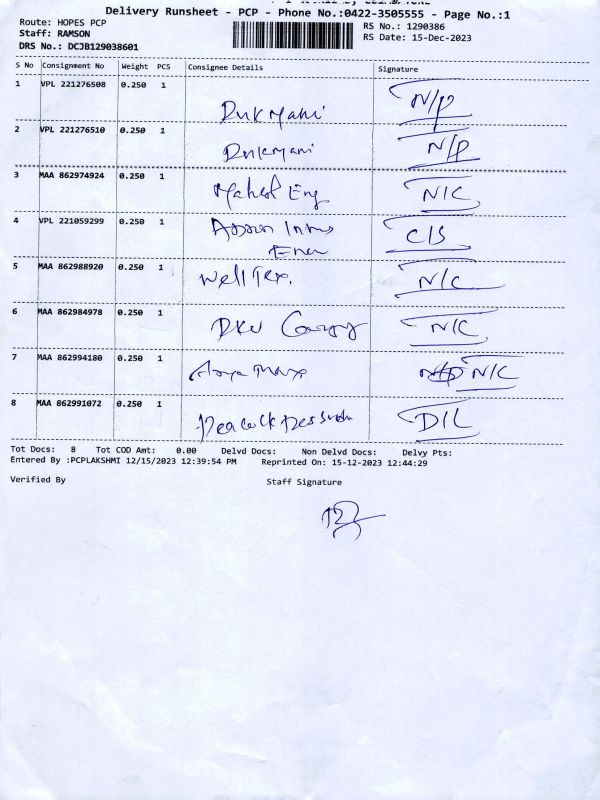 Delivery Runsheet - PCP - Phone No.:0422-3505555 - Page No.:1
Route: HOPES PCP
RS No.: 1290386
Staff: RAMSON
RS Date: 15-Dec-2023
DRS No.: DCJB129038601
S No Consignment No Weight PCS Consignee Details Signature
1 VPL 221276508 0.250 1 N/P
2 VPL 221276510 0.250 1 N/P
3 MAA 862974924 0.250 1 Eng N/C
4 VPL 221059299 0.250 1 C/S
5 MAA 862988920 0.250 1 Well Tex. N/C
6 MAA 862984978 0.250 1 N/C
7 MAA 862994180 0.250 1 N/C
8 MAA 862991072 0.250 1 Peacock D/L
Tot Docs: 8 Tot COD Amt: 0.00 Delvd Docs: Non Delvd Docs: Delvy Pts:
Entered By :PCPLAKSHMI 12/15/2023 12:39:54 PM Reprinted On: 15-12-2023 12:44:29
Verified By Staff Signature